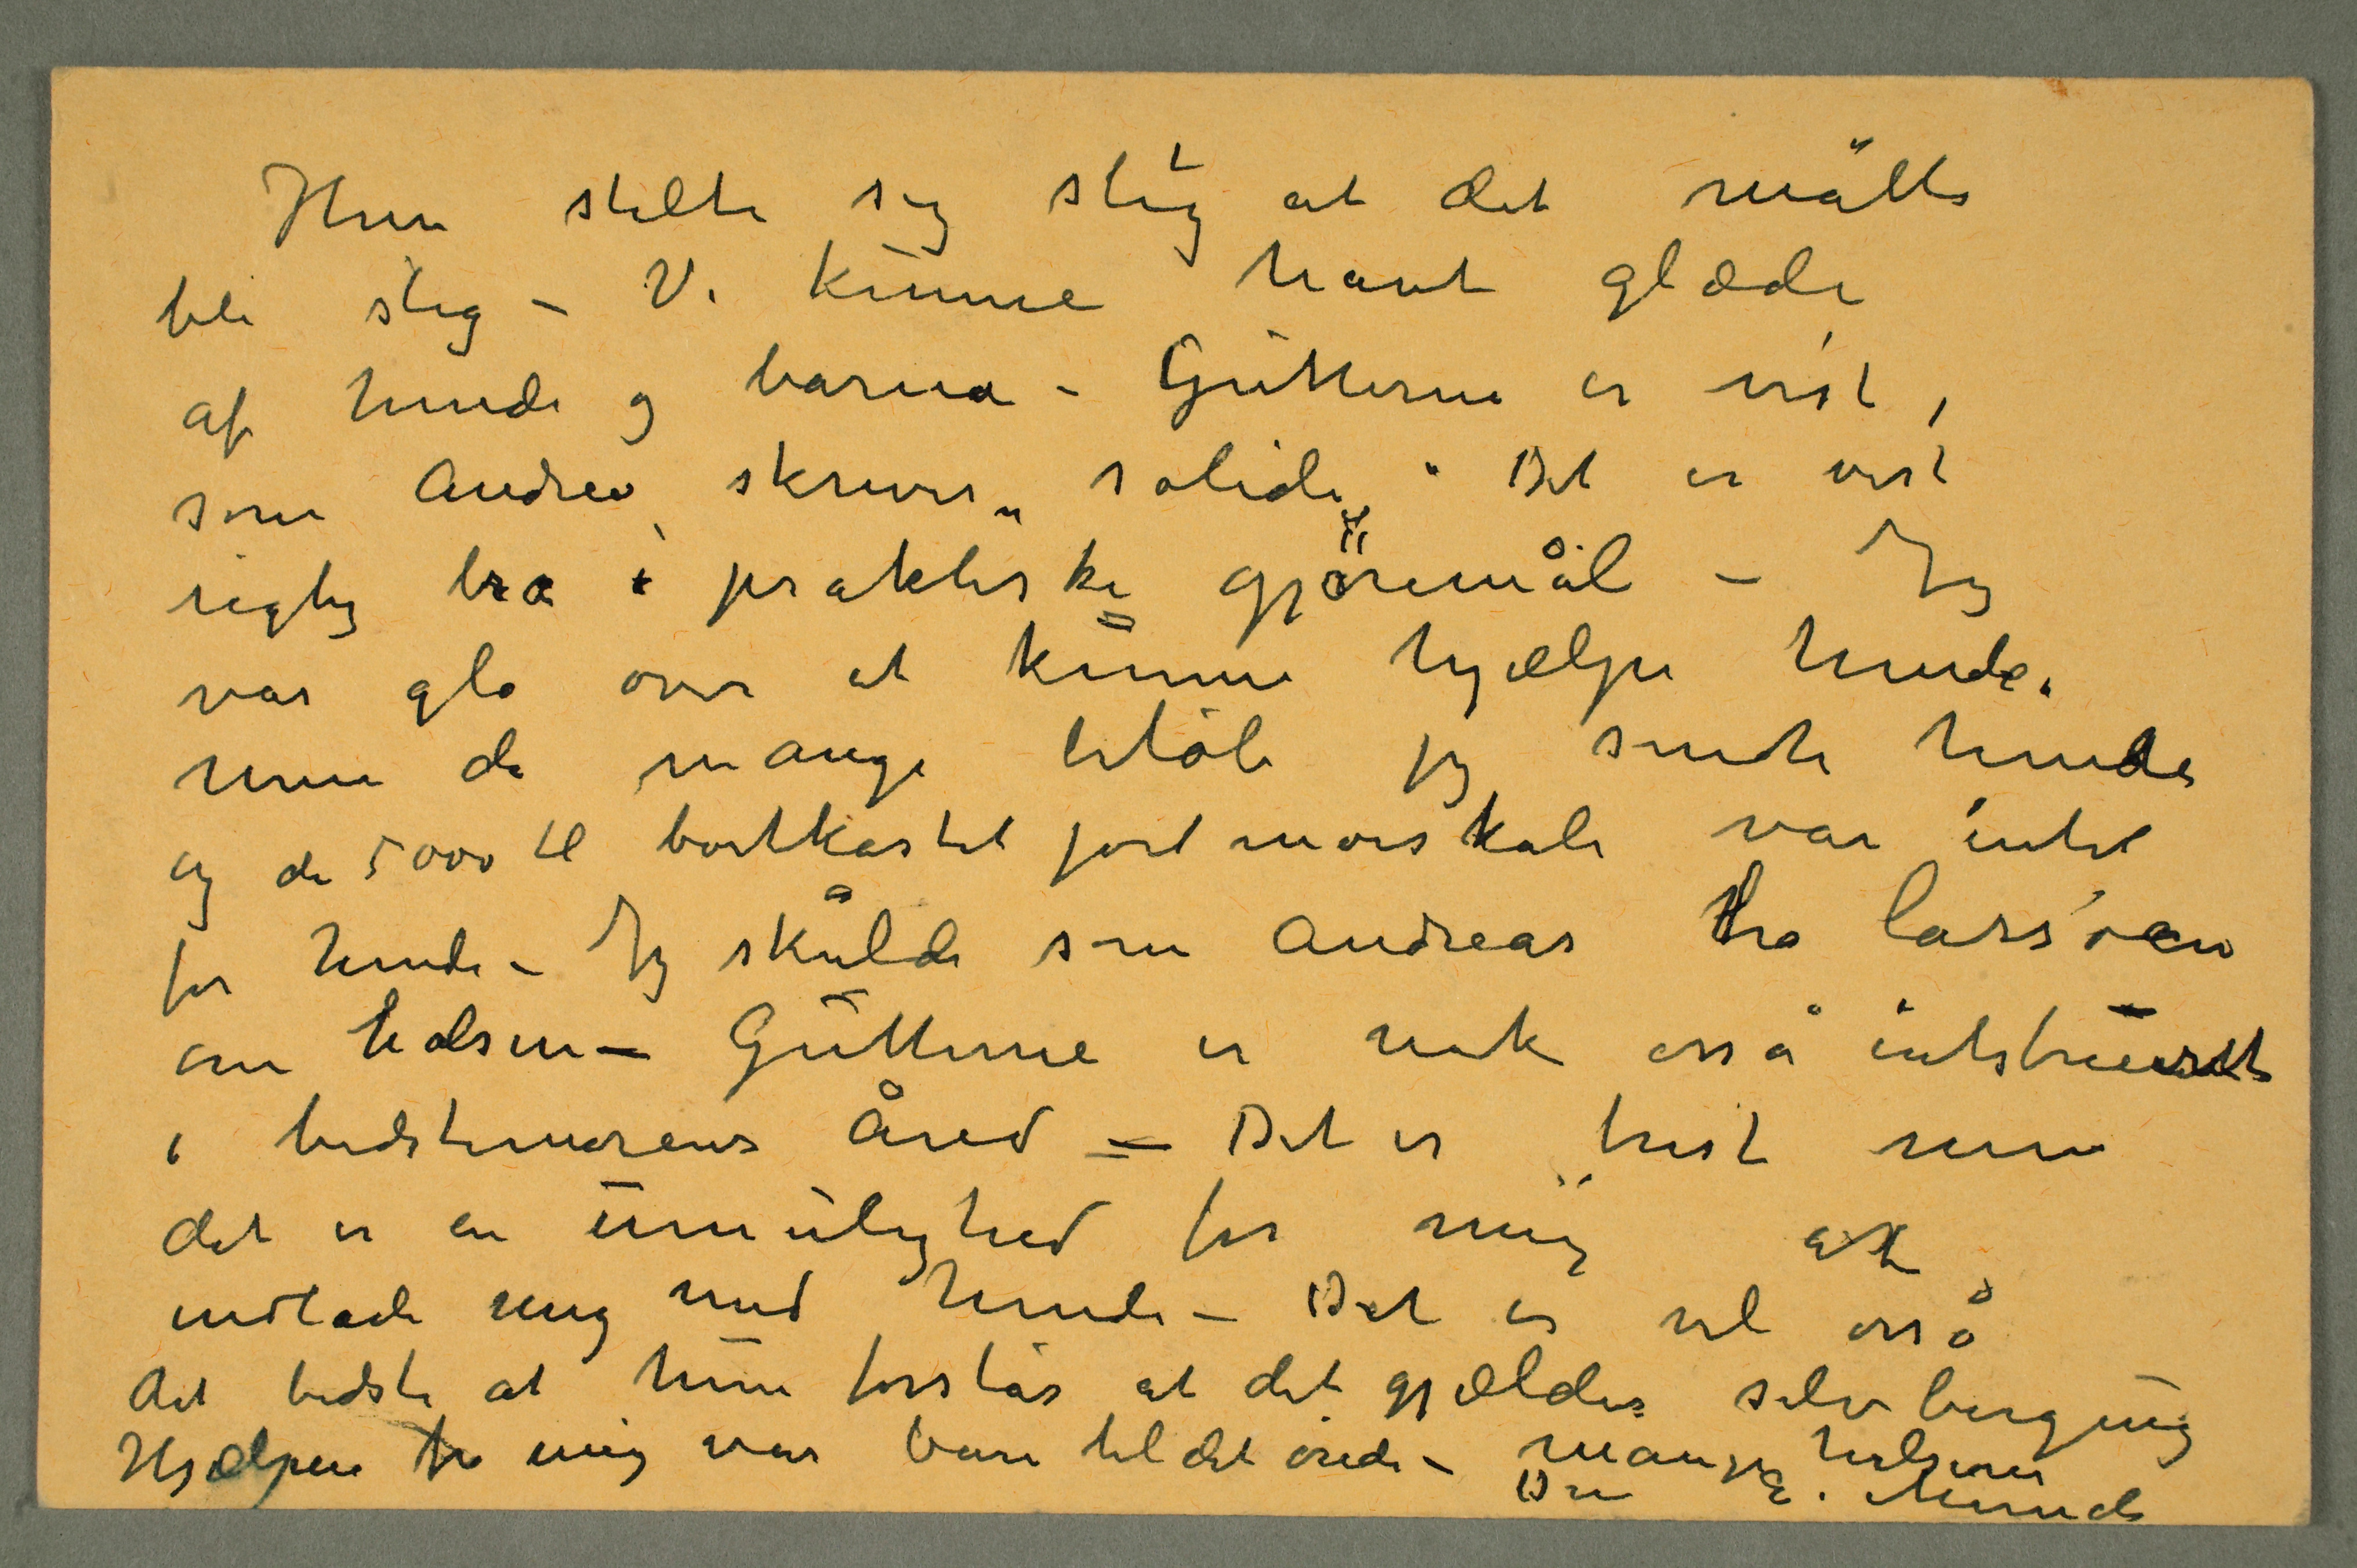 Hun stelte sig slig at det måtte
bli slig – Vi kunne havt glæde
af hende og barna – Guttene er vist,
som Andrea skriver „solide“ Det er vist
rigtig bra i praktiske gjöremål – Jeg
var gla over at kunne hjælpe hende.
men de mange beløb jeg sendte hende
og de 5000 til bortkastet jordmorskole var intet
for hende – Jeg skulde som Andreas ha lassoen
om halsen – Gutterne er nok osså intstrueret
i bedstemorens ånd – Det er trist men
det er en umulighed for mig at
indlade mig med hende – Det er vel osså
det bedste at hun forstår at det gjælder selvberging
Hjælpen fra mig var bare til det onde – Mange hilsener
Din E. Munch